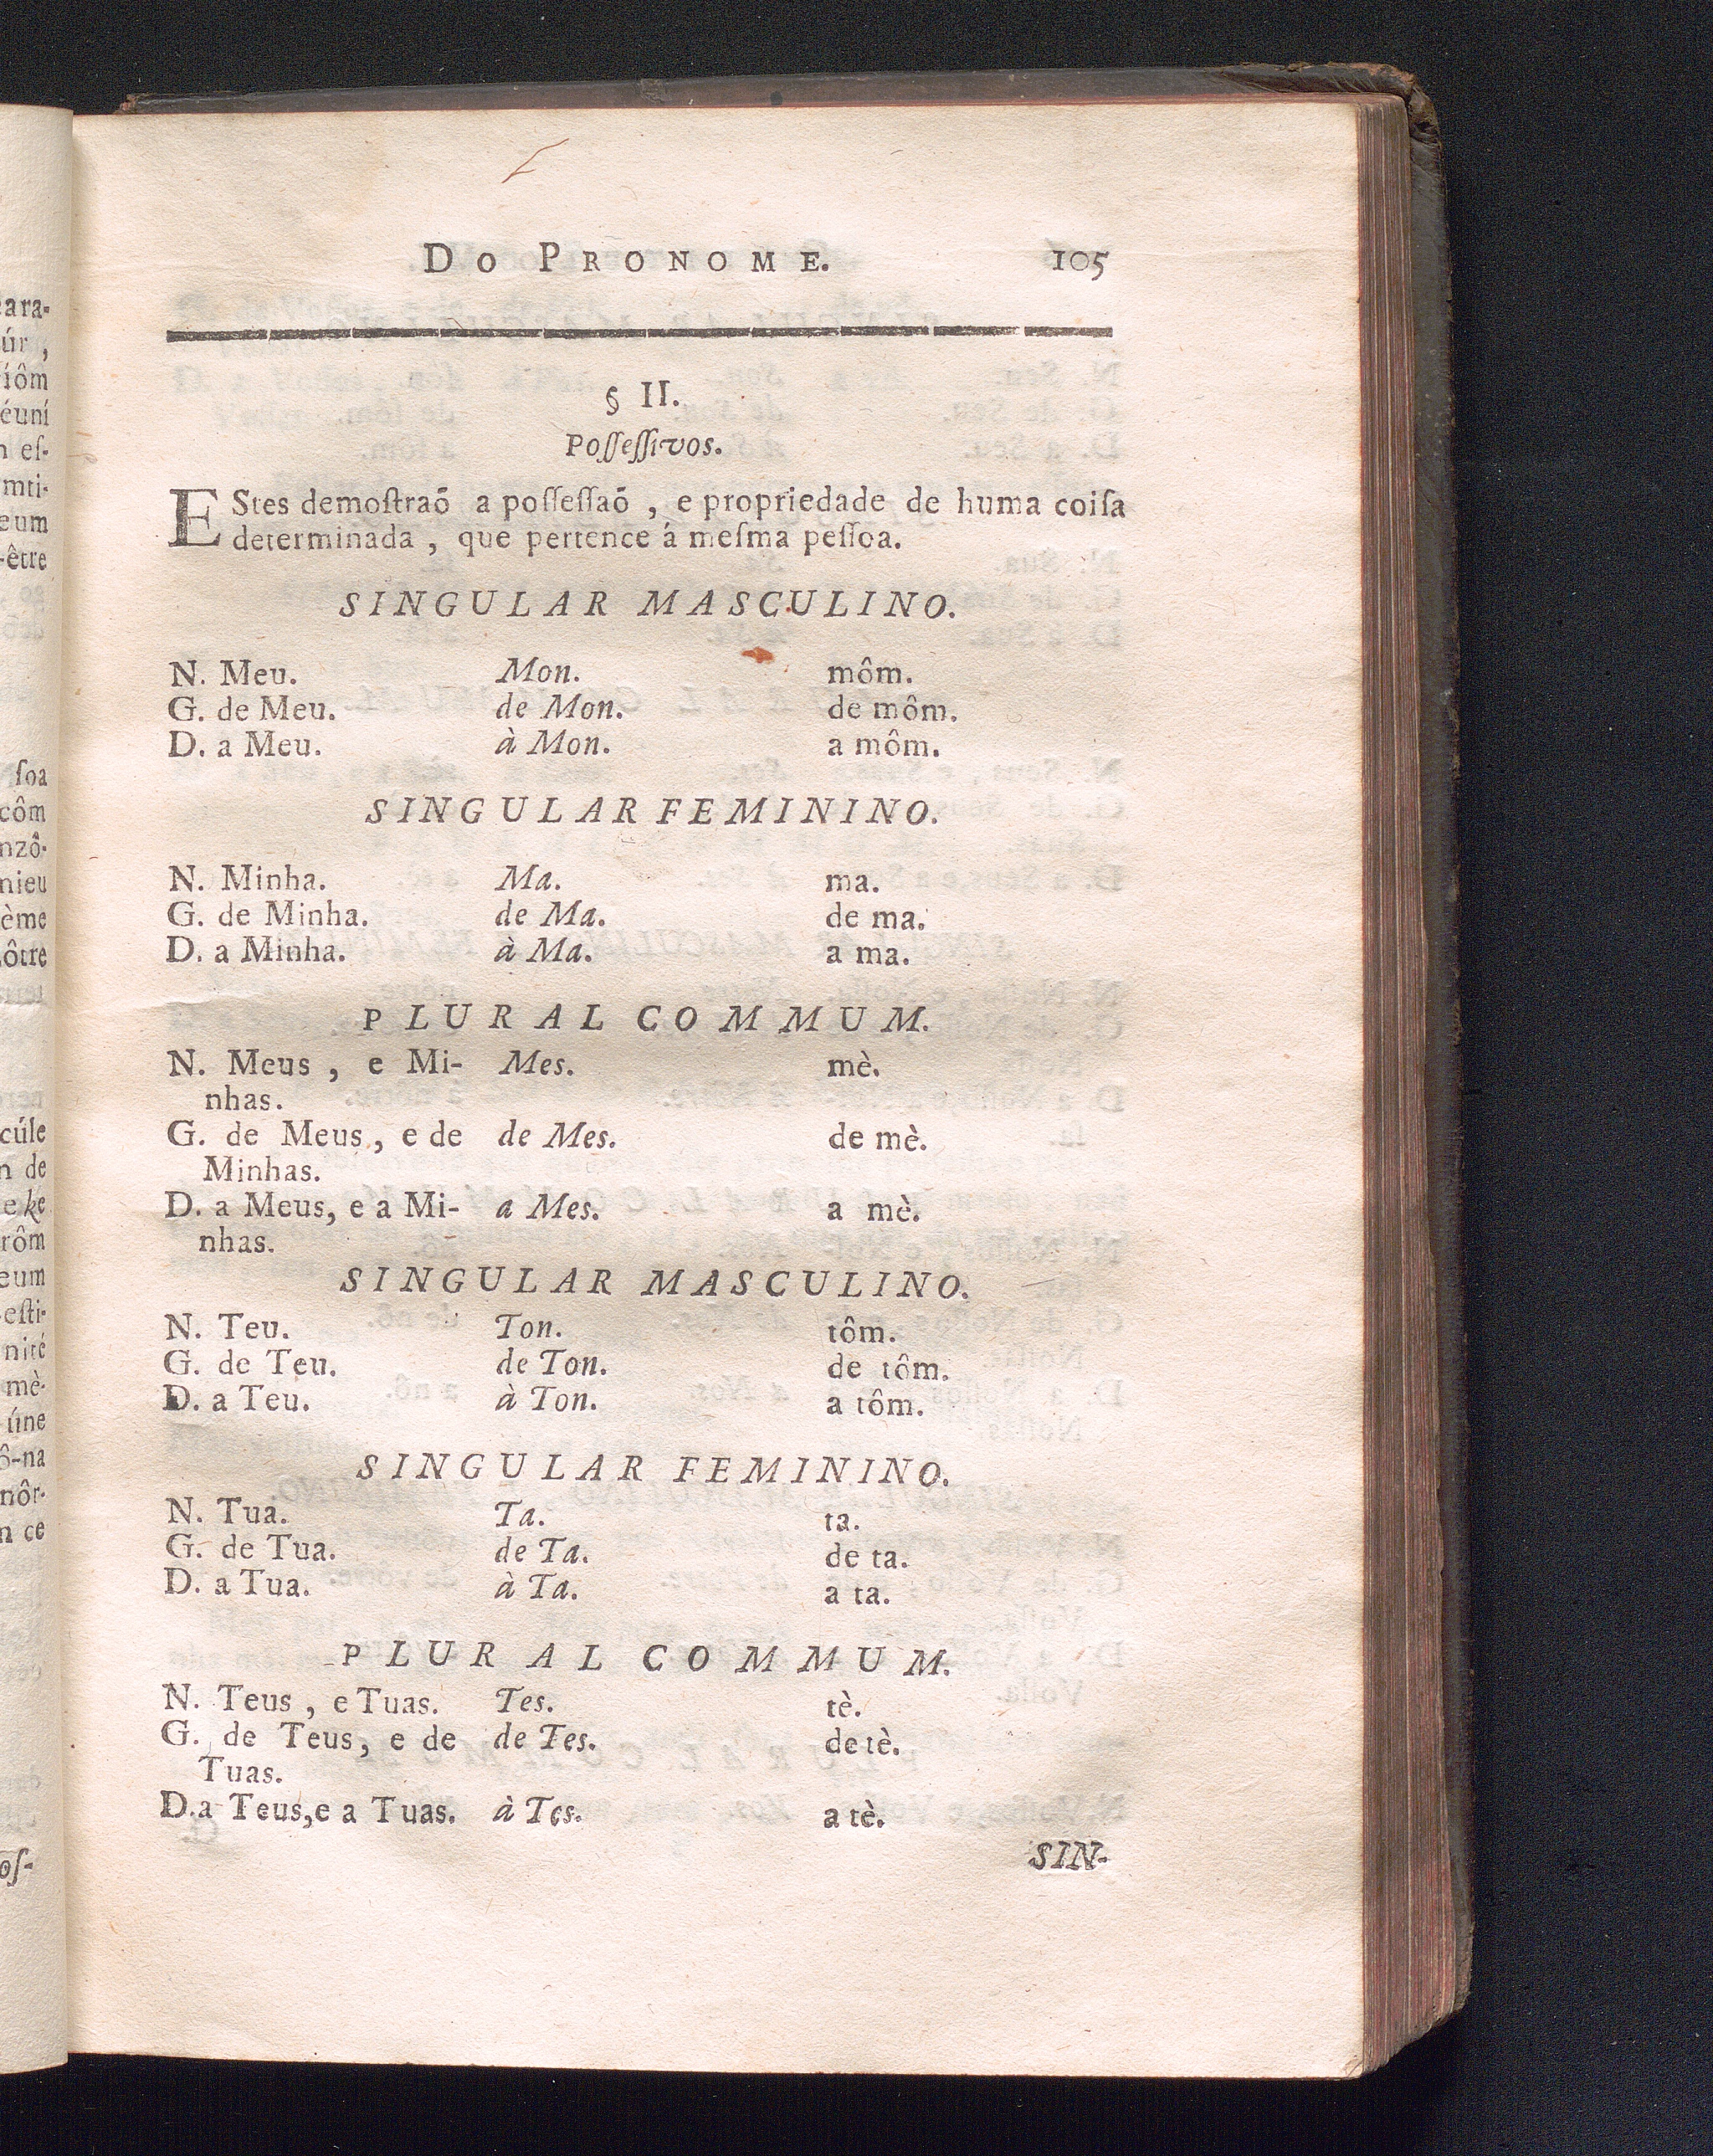 DO PRONOME. 105
§ II.
Poſſeſſivos.
EStes demoſtraõ a poſſeſſaõ , e propriedade de huma coiſa
determinada , que pertence á meſma peſſoa.
SINGULAR MASCULINO.
N. Meu. Mon. môm.
G. de Meu. de Mon. de môm.
D. a Meu. à Mon. a môm.
SINGULAR FEMININO.
N. Minha. Ma. ma.
G. de Minha. de Ma. de ma.
D. a Minha. à Ma. a ma.
PLURAL COMMUM.
N. Meus , e Mi- Mes. mè.
nhas.
G. de Meus, e de de Mes. de mè.
Minhas.
D. a Meus, e a Mi- a Mes. a mè.
nhas.
SINGULAR MASCULINO.
N. Teu. Ton. tôm.
G. de Teu. de Ton. de tôm.
D. a Teu. à Ton. a tôm.
SINGULAR FEMININO.
N. Tua. Ta. ta.
G. de Tua. de Ta. de ta.
D. a Tua. à Ta. a ta.
PLURAL COMMUM.
N. Teus , e Tuas. Tes. tè.
G. de Teus, e de de Tes. de tè.
Tuas.
D. a Teus, e a Tuas. à Tes. a tè.
SIN-